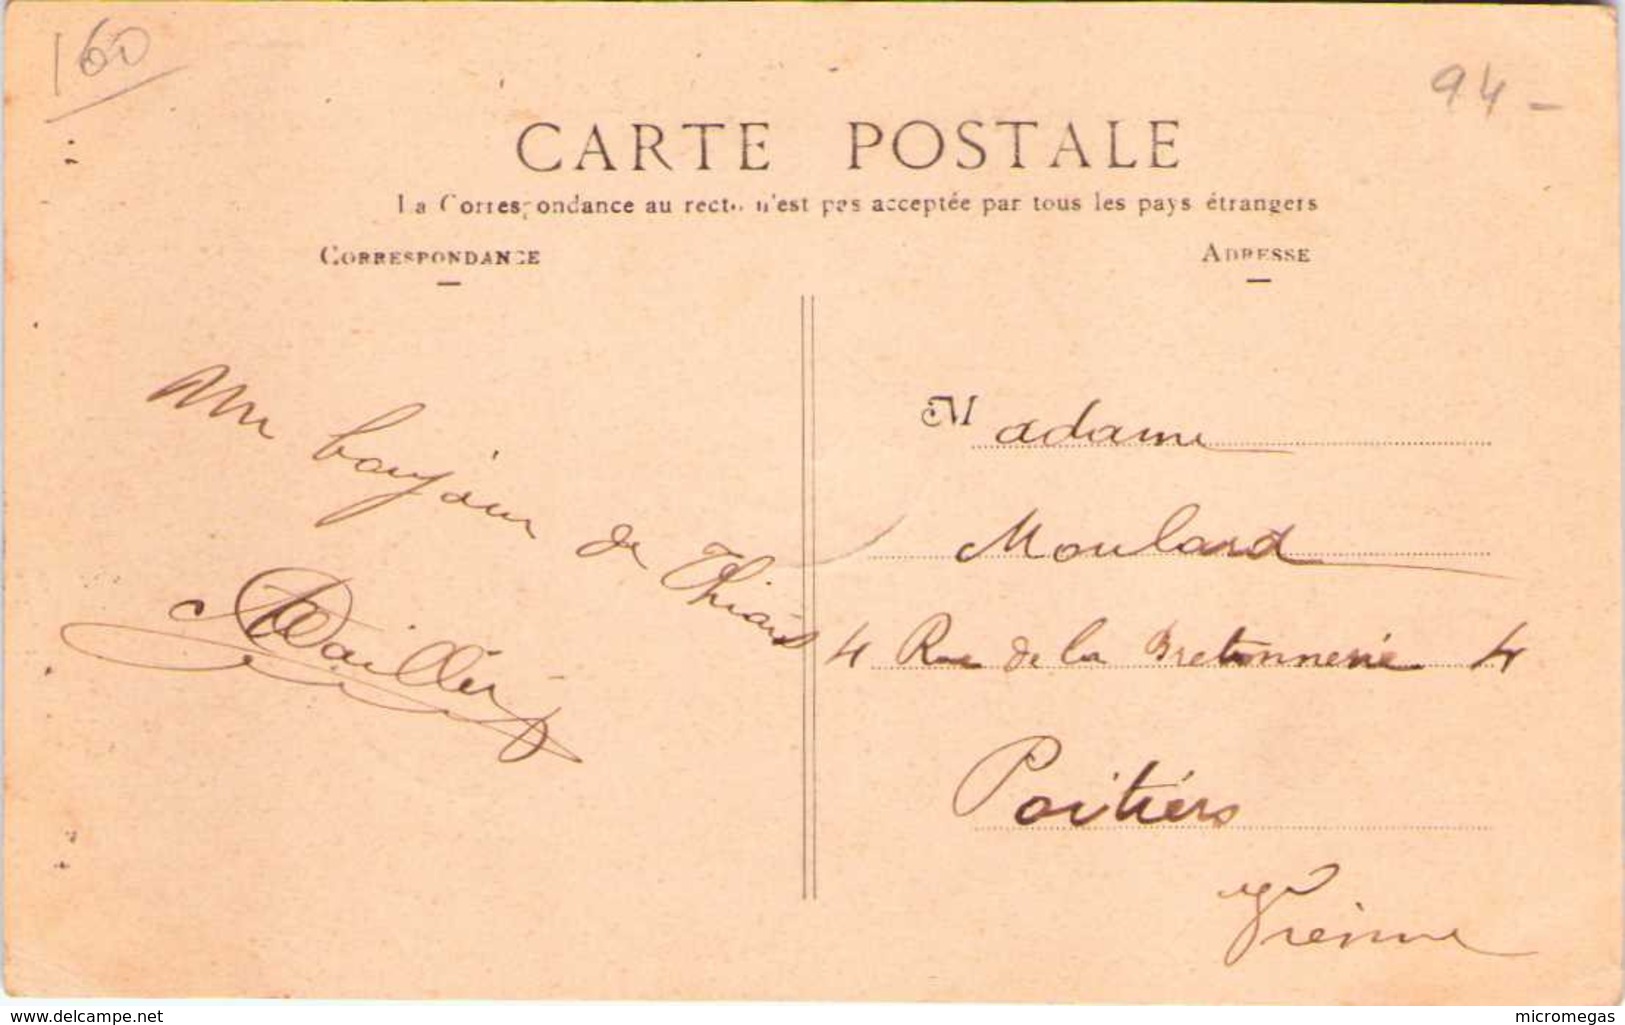 160
94 -
CARTE POSTALE
La Correspondance au recto n'est pas acceptée par tous les pays étrangers
CORRESPONDANCE
ADRESSE
Un bonjour de Thiais
Madame
Moulard
4 Rue de la Bretonnerie 4
Poitiers
Vienne
www.delcampe.net
micromegas